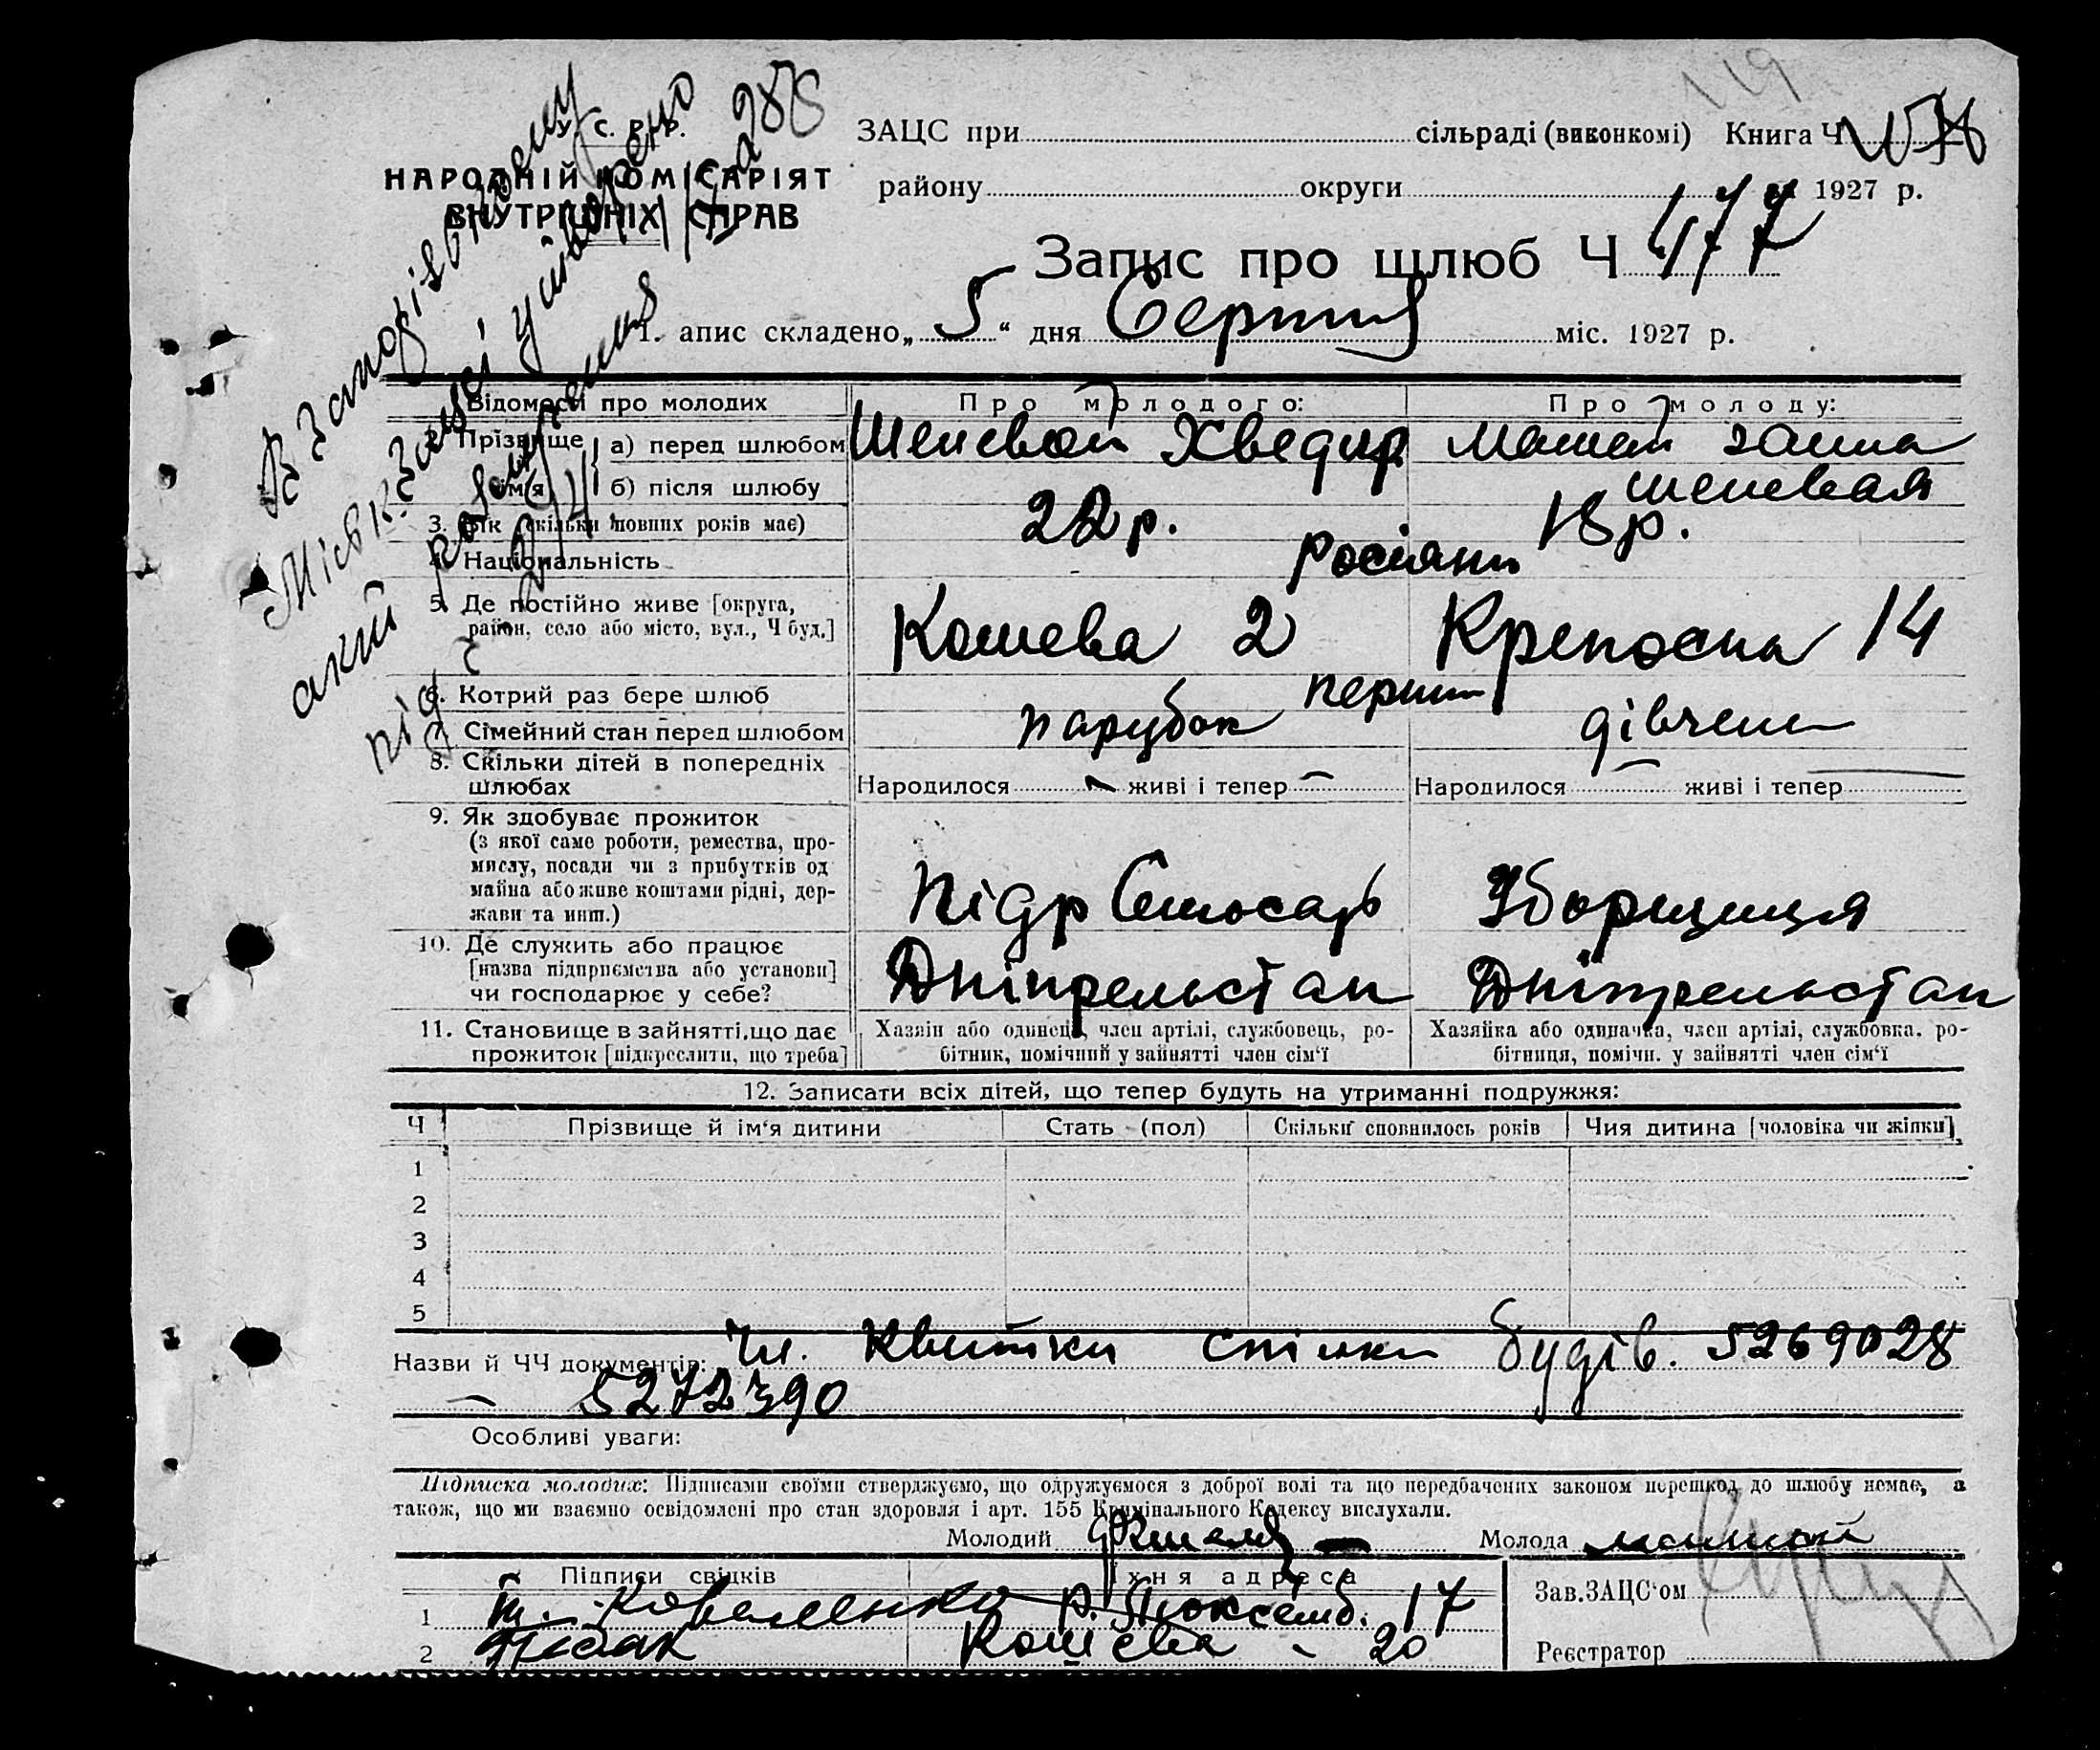 119
У. С. Р. Р.
НАРОДНІЙ КОМІСАРІЯТ
ВНУТРІШНІХ СПРАВ
ЗАЦС при сільраді (виконкомі) Книга Ч
району округи 1927 р.
Запис про шлюб Ч 477
1. апис складено „ 5 “ дня Серпня міс. 1927 р.
В Запорізькому
Міськ. Зацсі утворено
акий розвід
під Ч 294
Відомості про молодих Про молодого: Про молоду:
2. Прізвище ім'я а) перед шлюбом Шепевой Хведир Мамай Ганна
б) після шлюбу Шепевая
3. Вік (скільки повних років має) 22 р. 18 р.
4. Національність росіяни
5. Де постійно живе [округа,
район, село або місто, вул., Ч буд.] Кошева 2 Крепосна 14
6. Котрий раз бере шлюб перший
7. Сімейний стан перед шлюбом парубок дівчина
8. Скільки дітей в попередніх
шлюбах Народилося — живі і тепер — Народилося — живі і тепер —
9. Як здобуває прожиток
(з якої саме роботи, ремества, про-
мислу, посади чи з прибутків од
майна або живе коштами рідні, дер-
жави та инш.) Підр Слюсарь Уборщиця
10. Де служить або працює
[назва підприємства або установи]
чи господарює у себе? Дніпрельстан Дніпрельстан
11. Становище в зайнятті, що дає
прожиток [підкреслити, що треба]
Хазяін або одинец, член артілі, службовець, ро-
бітник, помічний у зайнятті член сім'ї
Хазяйка або одиначка, член артілі, службовка, ро-
бітниця, помічн. у зайнятті член сім'ї
12. Записати всіх дітей, що тепер будуть на утриманні подружжя:
Ч Прізвище й ім'я дитини Стать (пол) Скільки сповнилось років Чия дитина [чоловіка чи жінки]
1
2
3
4
5
Назви й ЧЧ документів: Чл. Квитки спілки будів. 5269028
— 5272390
Особливі уваги:
Підписка молодих: Підписами своїми стверджуємо, що одружуємося з доброї волі та що передбачених законом перешкод до шлюбу немає, а
також, що ми взаємно освідомлені про стан здоровля і арт. 155 Кримінального Кодексу вислухали.
Молодий Молода Мамай
Підписи свідків Їхня адреса Зав. ЗАЦС'ом
1 Коваленко р. Люксемб. 17
2 Кошева - 20 Реєстратор